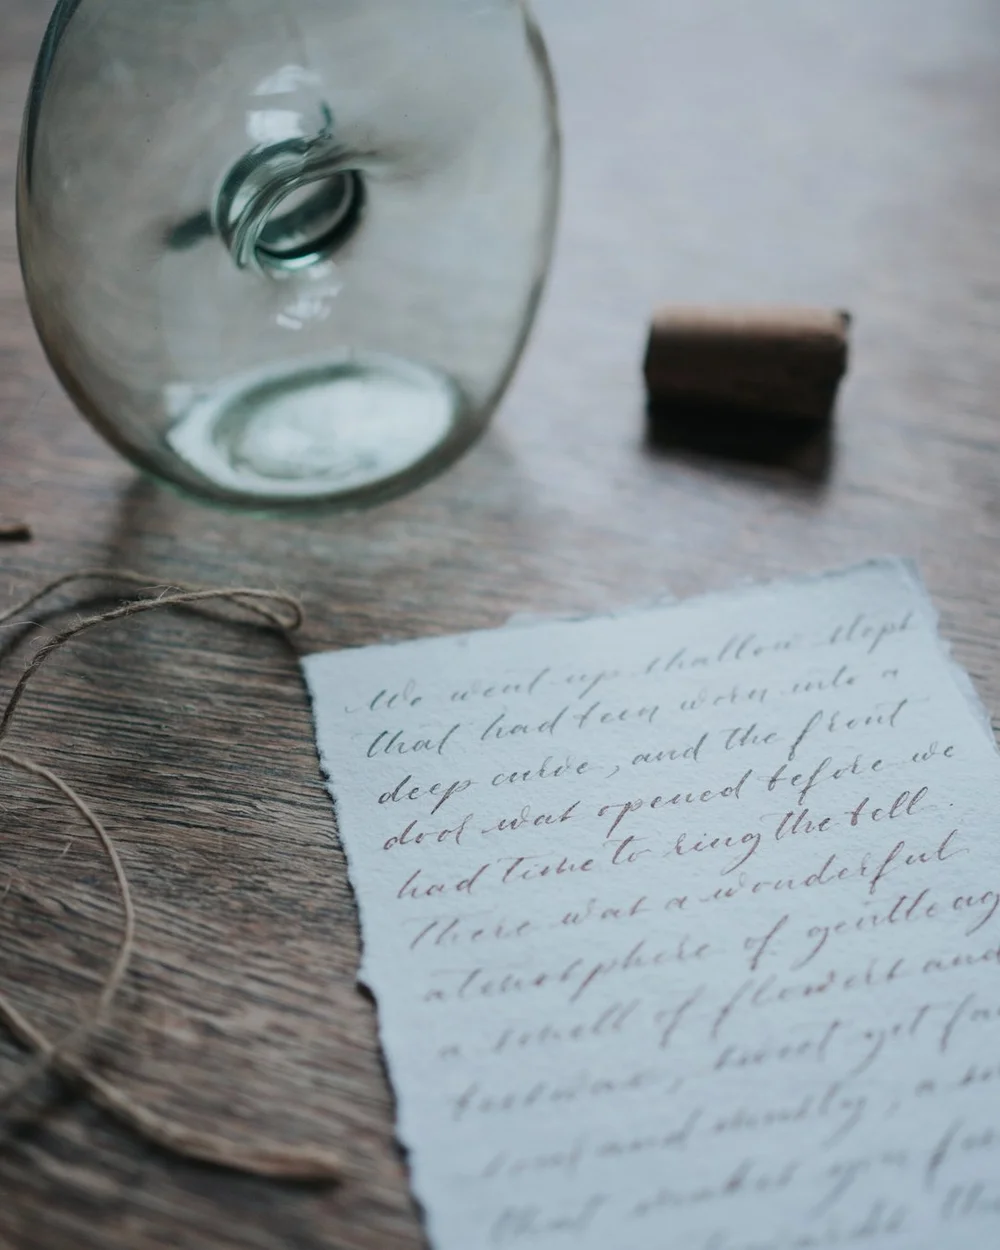 We went up shallow steps
that had been worn into a
deep curve, and the front
door was opened before we
had time to ring the bell.
There was a wonderful
atmosphere of gentle ag
a smell of flowers and
beeswax, sweet yet fa
and musty, a
that makes you fe